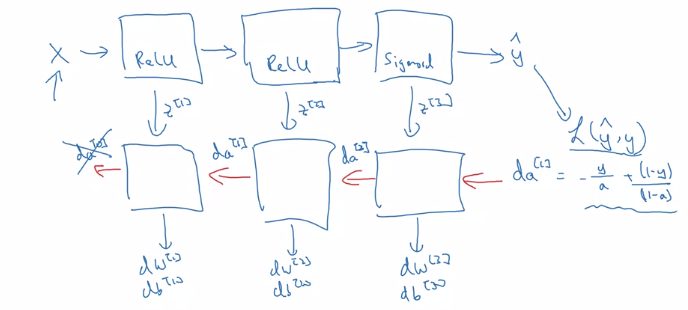 X → ReLU → ReLU → Sigmoid → ŷ
z^[1] z^[2] z^[3]
L(ŷ,y)
da^[0] da^[1] da^[2] da^[L] = -y/a + (1-y)/(1-a)
dW^[1] dW^[2] dW^[3]
db^[1] db^[2] db^[3]